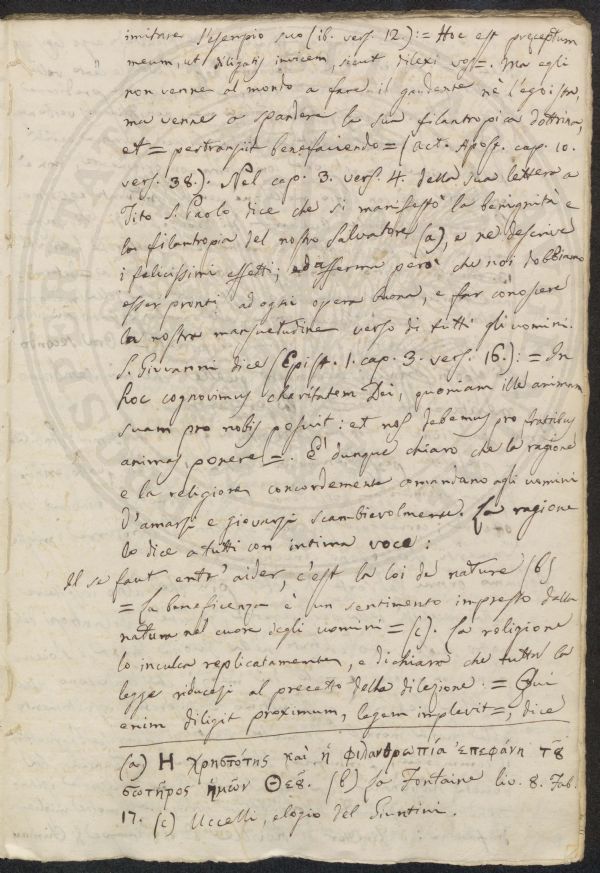 imitare l'esempio suo (ib. vers. 12.): = Hoc est præceptum
meum, ut diligatis invicem, sicut dilexi vos =. Ma egli
non venne al mondo a fare il gaudente nè l'egoista,
ma venne a spandere la sua filantropica dottrina,
et = pertransiit benefaciendo = (act. Apost. cap. 10.
vers. 38.). Nel cap. 3. vers. 4. della sua lettera a
Tito S. Paolo dice che si manifestò la benignità e
la filantropia del nostro Salvatore (a), e ne descrive
i felicissimi effetti; ed afferma però che noi dobbiamo
esser pronti ad ogni opera buona, e far conoscere
la nostra mansuetudine verso di tutti gli uomini.
S. Giovanni dice (Epist. 1. cap. 3. vers. 16.): = In
hoc cognovimus charitatem Dei, quoniam ille animam
suam pro nobis posuit: et nos debemus pro fratribus
animas ponere =. E' dunque chiaro che la ragione
e la religione concordemente comandano agli uomini
d'amarsi e giovarsi scambievolmente. La ragione
lo dice a tutti con intima voce:
Il se faut entr'aider, c'est la loi de nature (b)
= La beneficenza è un sentimento impresso dalla
natura nel cuore degli uomini = (c). La religione
lo inculca replicatamente, e dichiara che tutta la
legge riducesi al precetto della dilezione: = Qui
enim diligit proximum, legem implevit =, dice
(a) Η χρηστότης καὶ ἡ φιλανθρωπία ἐπεφάνη τȣ͂
σωτῆρος ἡμῶν Θεȣ͂. (b) La Fontaine liv. 8. Fab.
17. (c) Uccelli, elogio del Giuntini.